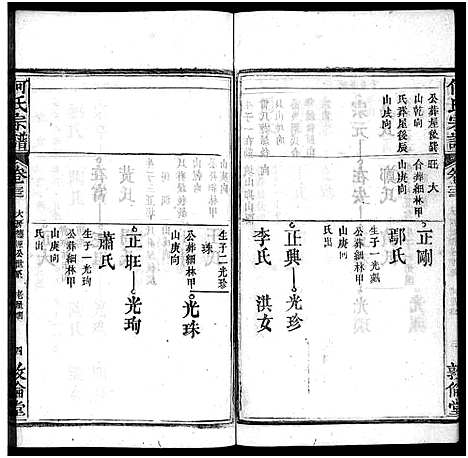 何氏宗譜
卷三
敦倫堂
公葬屋後巽
山乾向
氏葬屋後辰
山庚向
旺 大
合葬細林甲
山庚向
正剛
鄢氏
生子一光
公葬細林甲
山庚向
氏出
正興 光珍
李氏 淇女
生子二光珍
珠
公葬細林甲
山庚向
光珠
正旺 光珣
蕭氏
生子一光珣
公葬細林甲
山庚向
氏出
何氏宗譜
卷三
四
敦倫堂